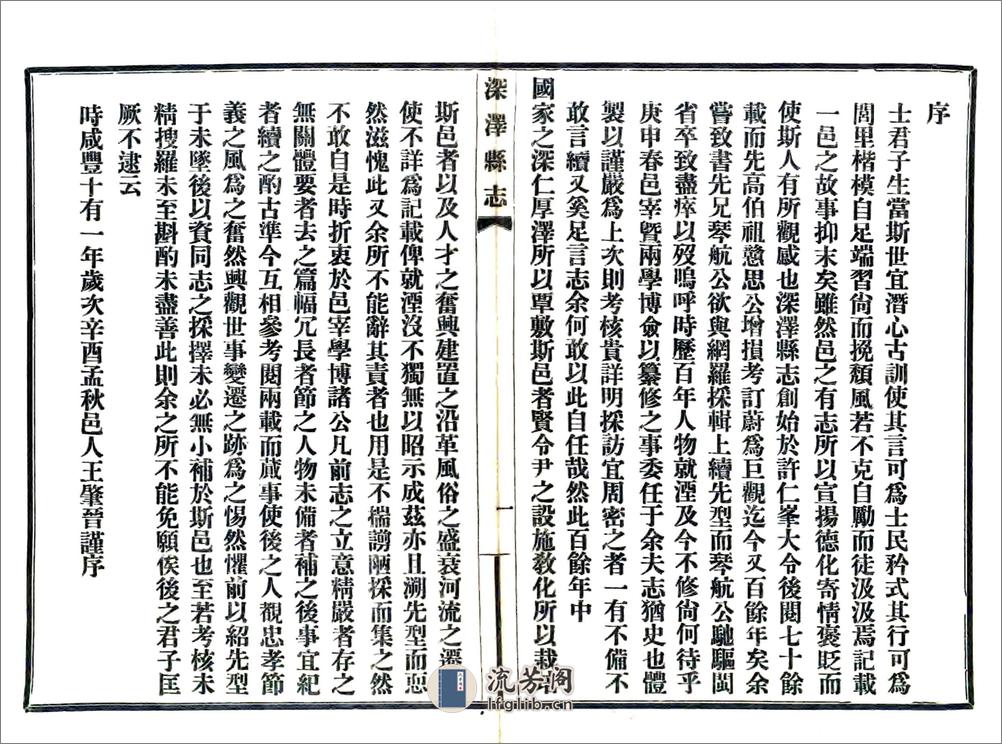 序
士君子生當斯世宜潛心古訓使其言可爲士民矜式其行可爲
閭里楷模自足端習尙而挽頹風若不克自勵而徒汲汲焉記載
一邑之故事抑末矣雖然邑之有志所以宣揚德化寄情褒貶而
使斯人有所觀感也深澤縣志創始於許仁峯大令後閱七十餘
載而先高伯祖戇思公增損考訂蔚爲巨觀迄今又百餘年矣余
嘗致書先兄琴航公欲與網羅採輯上續先型而琴航公馳驅閩
省卒致盡瘁以歿嗚呼時歷百年人物就湮及今不修尙何待乎
庚申春邑宰曁兩學博僉以纂修之事委任于余夫志猶史也體
製以謹嚴爲上次則考核貴詳明採訪宜周密之者一有不備不
敢言續又奚足言志余何敢以此自任哉然此百餘年中
國家之深仁厚澤所以覃敷斯邑者賢令尹之設施敎化所以栽
深澤縣志
一
斯邑者以及人才之奮興建置之沿革風俗之盛衰河流之遷
使不詳爲記載俾就湮沒不獨無以昭示成茲亦且溯先型而恧
然滋愧此又余所不能辭其責者也用是不揣謭陋採而集之然
不敢自是時折衷於邑宰學博諸公凡前志之立意精嚴者存之
無關體要者去之篇幅冗長者節之人物未備者補之後事宜紀
者續之酌古準今互相參考閱兩載而蕆事使後之人覩忠孝節
義之風爲之奮然興觀世事變遷之跡爲之惕然懼前以紹先型
于未墜後以資同志之採擇未必無小補於斯邑也至若考核未
精搜羅未至斟酌未盡善此則余之所不能免願俟後之君子匡
厥不逮云
時咸豐十有一年歲次辛酉孟秋邑人王肇晉謹序
流芳閣
lfglib.cn